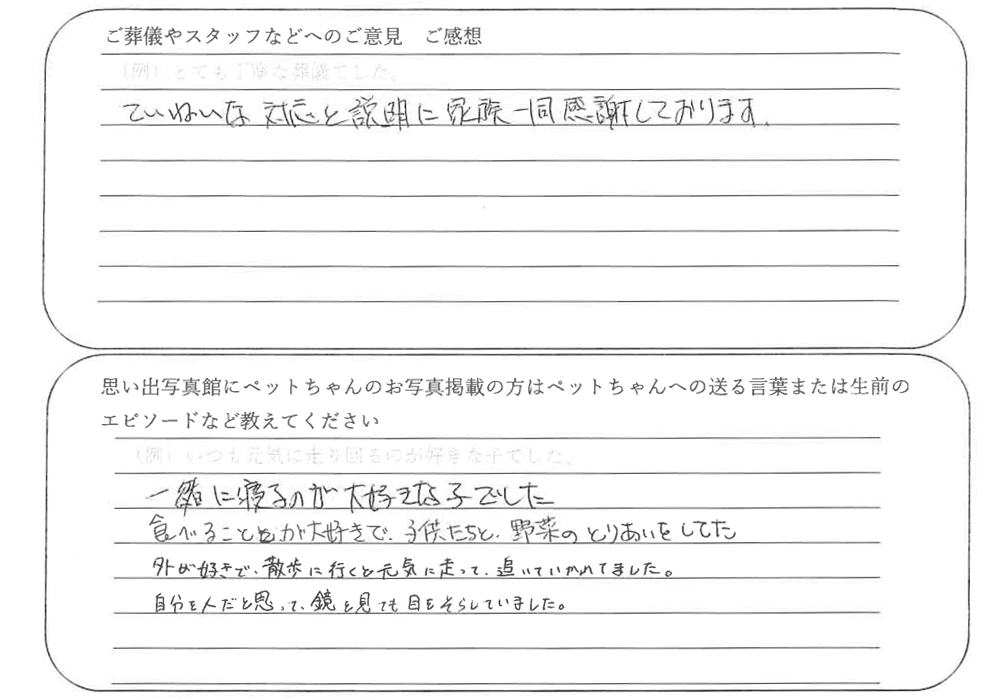 ご葬儀やスタッフなどへのご意見　ご感想
（例）とても丁寧な葬儀でした。
ていねいな 対応と説明に家族一同感謝しております。
思い出写真館にペットちゃんのお写真掲載の方はペットちゃんへの送る言葉または生前の
エピソードなど教えてください
（例）いつも元気に走り回るのが好きな子でした。
一緒に寝るのが大好きな子でした
食べることが大好きで、子供たちと、野菜のとりあいをしてた
外が好きで、散歩に行くと元気に走って、追いていかれてました。
自分を人だと思って、鏡を見ても目をそらしていました。